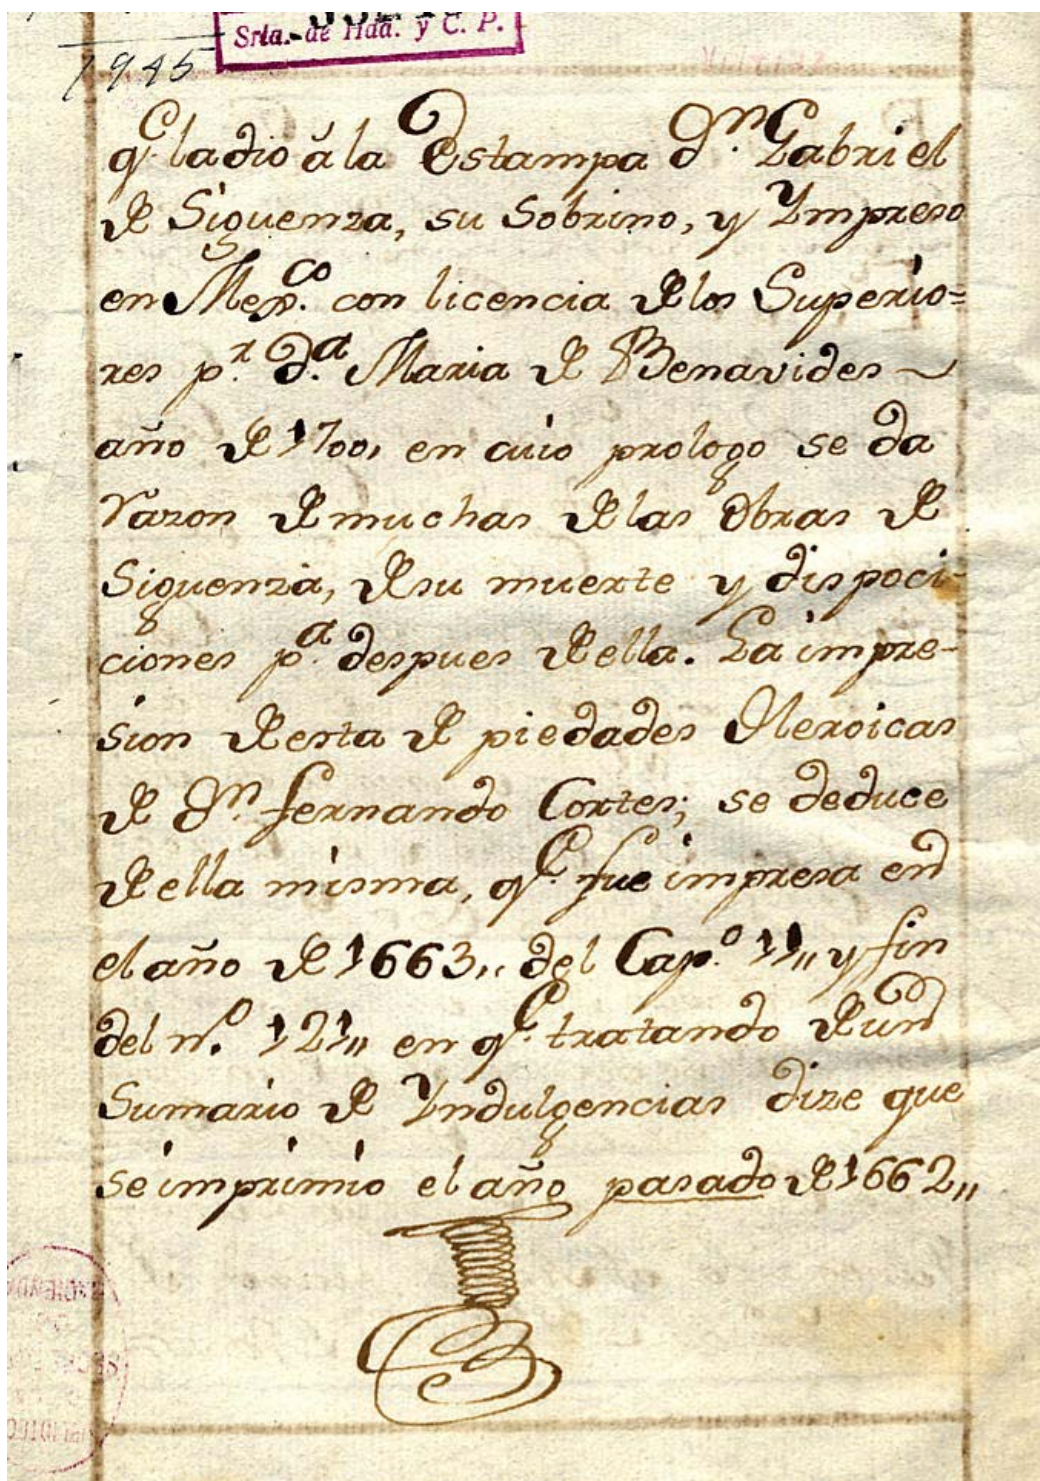 Srta. de Hda. y C. P.
1945
q.e la dio â la Estampa D.n Gabriel
de Siguenza, su Sobrino, y Ympreso
en Mex.co con licencia de los Superio=
res p.r D.a Maria de Benavides ~
año de 1700, en cuio prologo se da
razon de muchas de las Obras de
Siguenza, de su muerte y dispoci-
ciones p.a despues de ella. La impre-
sion de esta de piedades Heroicas
de D.n Fernando Cortes; se deduce
de ella misma, q.e fue impresa en
el año de 1663,, del Cap.o 11,, y fin
del n.o 121,, en q.e tratando de un
Sumario de Yndulgencias dize que
se imprimio el año pasado de 1662,,